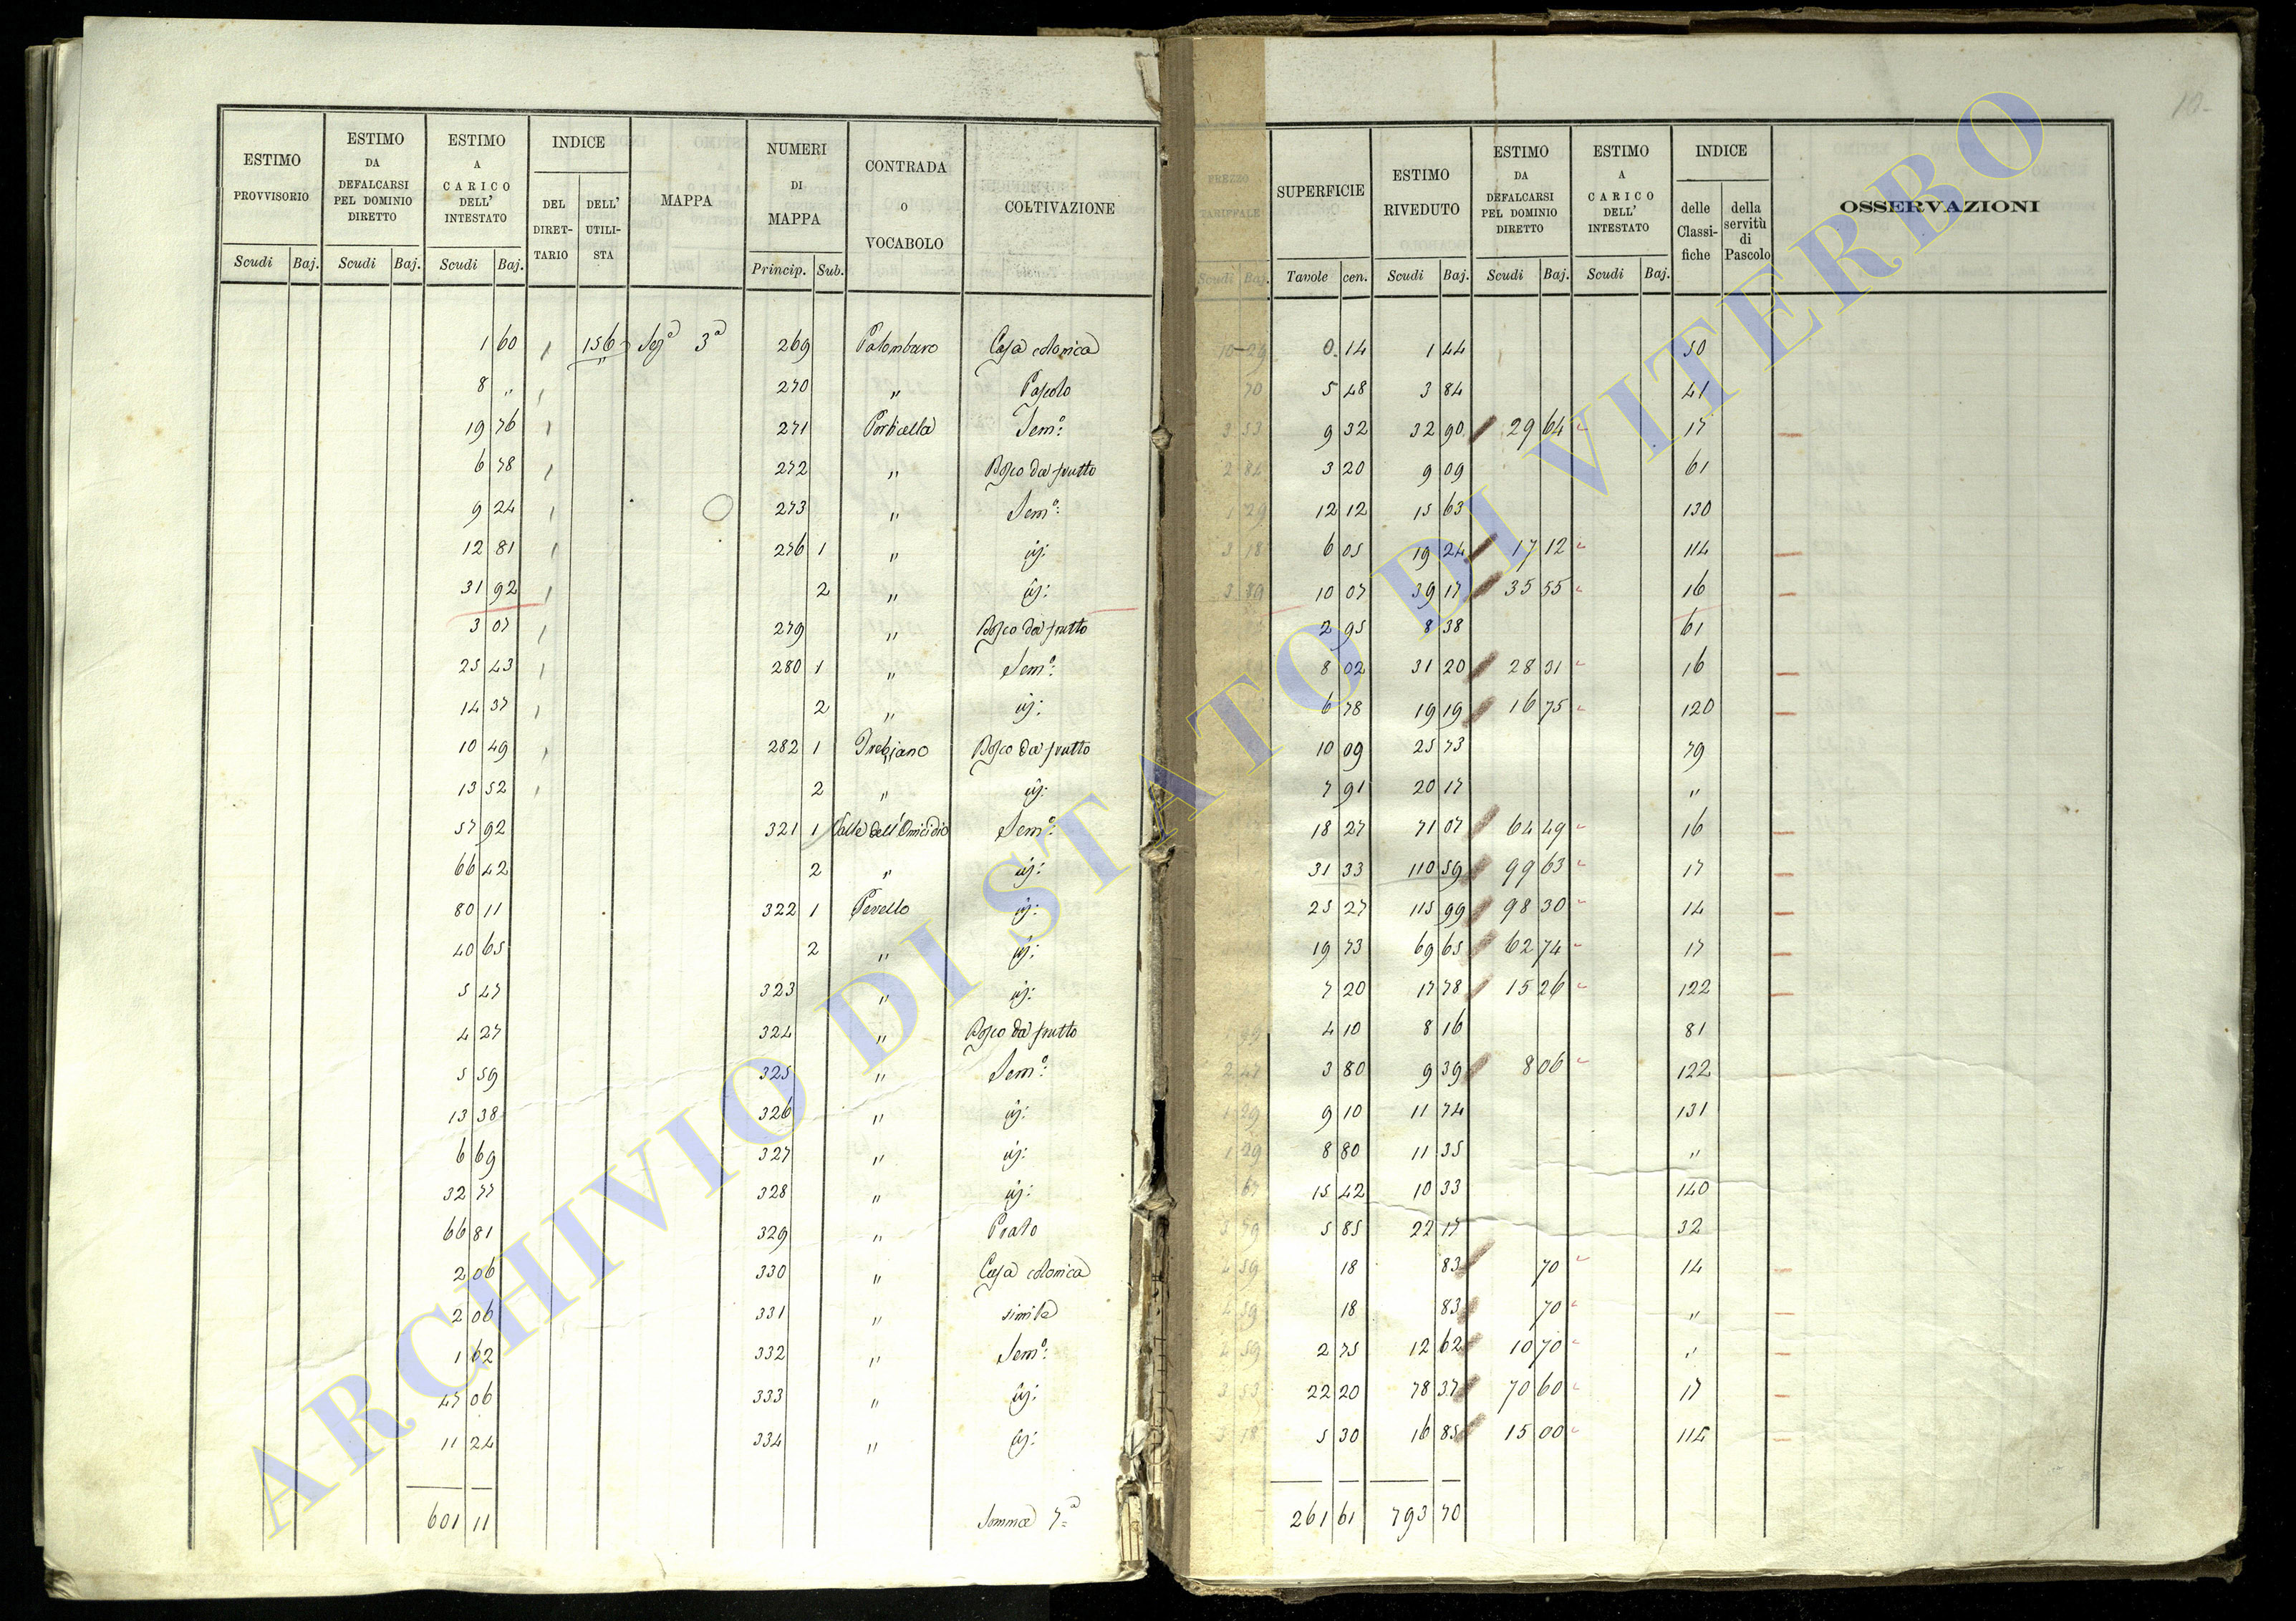 10-
ESTIMO PROVVISORIO
ESTIMO DA DEFALCARSI PEL DOMINIO DIRETTO
ESTIMO A CARICO DELL' INTESTATO
INDICE
DEL DIRET-TARIO
DELL' UTILI-STA
MAPPA
NUMERI DI MAPPA
CONTRADA O VOCABOLO
COLTIVAZIONE
PREZZO TARIFFALE
SUPERFICIE
ESTIMO RIVEDUTO
ESTIMO DA DEFALCARSI PEL DOMINIO DIRETTO
ESTIMO A CARICO DELL' INTESTATO
INDICE
delle Classi-fiche
della servitù di Pascolo
OSSERVAZIONI
Scudi Baj. Scudi Baj. Scudi Baj. Princip. Sub. Scudi Baj. Tavole cen. Scudi Baj. Scudi Baj. Scudi Baj.
1 60 156 Sezª 3ª 269 Palombaro Casa colonica 10 29 0. 14 1 44 50
8 " 270 " Pascolo 70 5 48 3 84 41
19 76 271 Porticella Sem.º 3 53 9 32 32 90 29 64 17
6 78 272 " Bosco da frutto 2 84 3 20 9 09 61
9 24 273 " Sem.º 1 29 12 12 15 63 130
12 81 276 1 " id: 3 18 6 05 19 24 17 12 114
31 92 2 " id: 3 89 10 07 39 17 35 55 16
3 07 279 " Bosco da frutto 2 95 8 38 61
25 43 280 1 " Sem.º 8 02 31 20 28 31 16
14 37 2 " id: 6 78 19 19 16 75 120
10 49 282 1 Trebiano Bosco da frutto 10 09 25 73 79
13 52 2 " id: 7 91 20 17 "
57 92 321 1 Valle dell'Omicidio Sem.º 18 27 71 07 64 49 16
66 42 2 " id: 31 33 110 59 99 63 17
80 11 322 1 Pevello id: 25 27 115 99 98 30 14
40 65 2 " id: 19 73 69 65 62 74 17
5 47 323 " id: 7 20 17 78 15 26 122
4 27 324 " Bosco da frutto 1 99 4 10 8 16 81
5 59 325 " Sem.º 2 47 3 80 9 39 8 06 122
13 38 326 " id: 1 29 9 10 11 74 131
6 69 327 " id: 1 29 8 80 11 35 "
32 77 328 " id: 67 15 42 10 33 140
66 81 329 " Prato 3 79 5 85 22 17 32
2 06 330 " Casa colonica 4 59 18 83 70 14
2 06 331 " simile 4 59 18 83 70 "
1 62 332 " Sem.º 4 59 2 75 12 62 10 70 "
47 06 333 " id: 3 53 22 20 78 37 70 60 17
11 24 334 " id: 3 18 5 30 16 85 15 00 114
601 11 Somma 7ª 261 61 793 70
ARCHIVIO DI STATO DI VITERBO